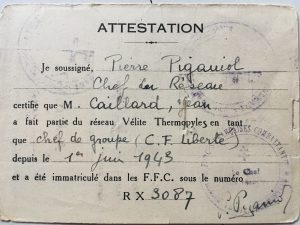 ATTESTATION
Je soussigné, Pierre Piganiol
Chef du Réseau
certifie que M. Caillard, Jean
a fait partie du réseau Vélite Thermopyles en tant
que chef de groupe (C.F. Liberté)
depuis le 1er juin 1943
et a été immatriculé dans les F.F.C. sous le numéro
RX 3087
Le Chef
P. Piganiol